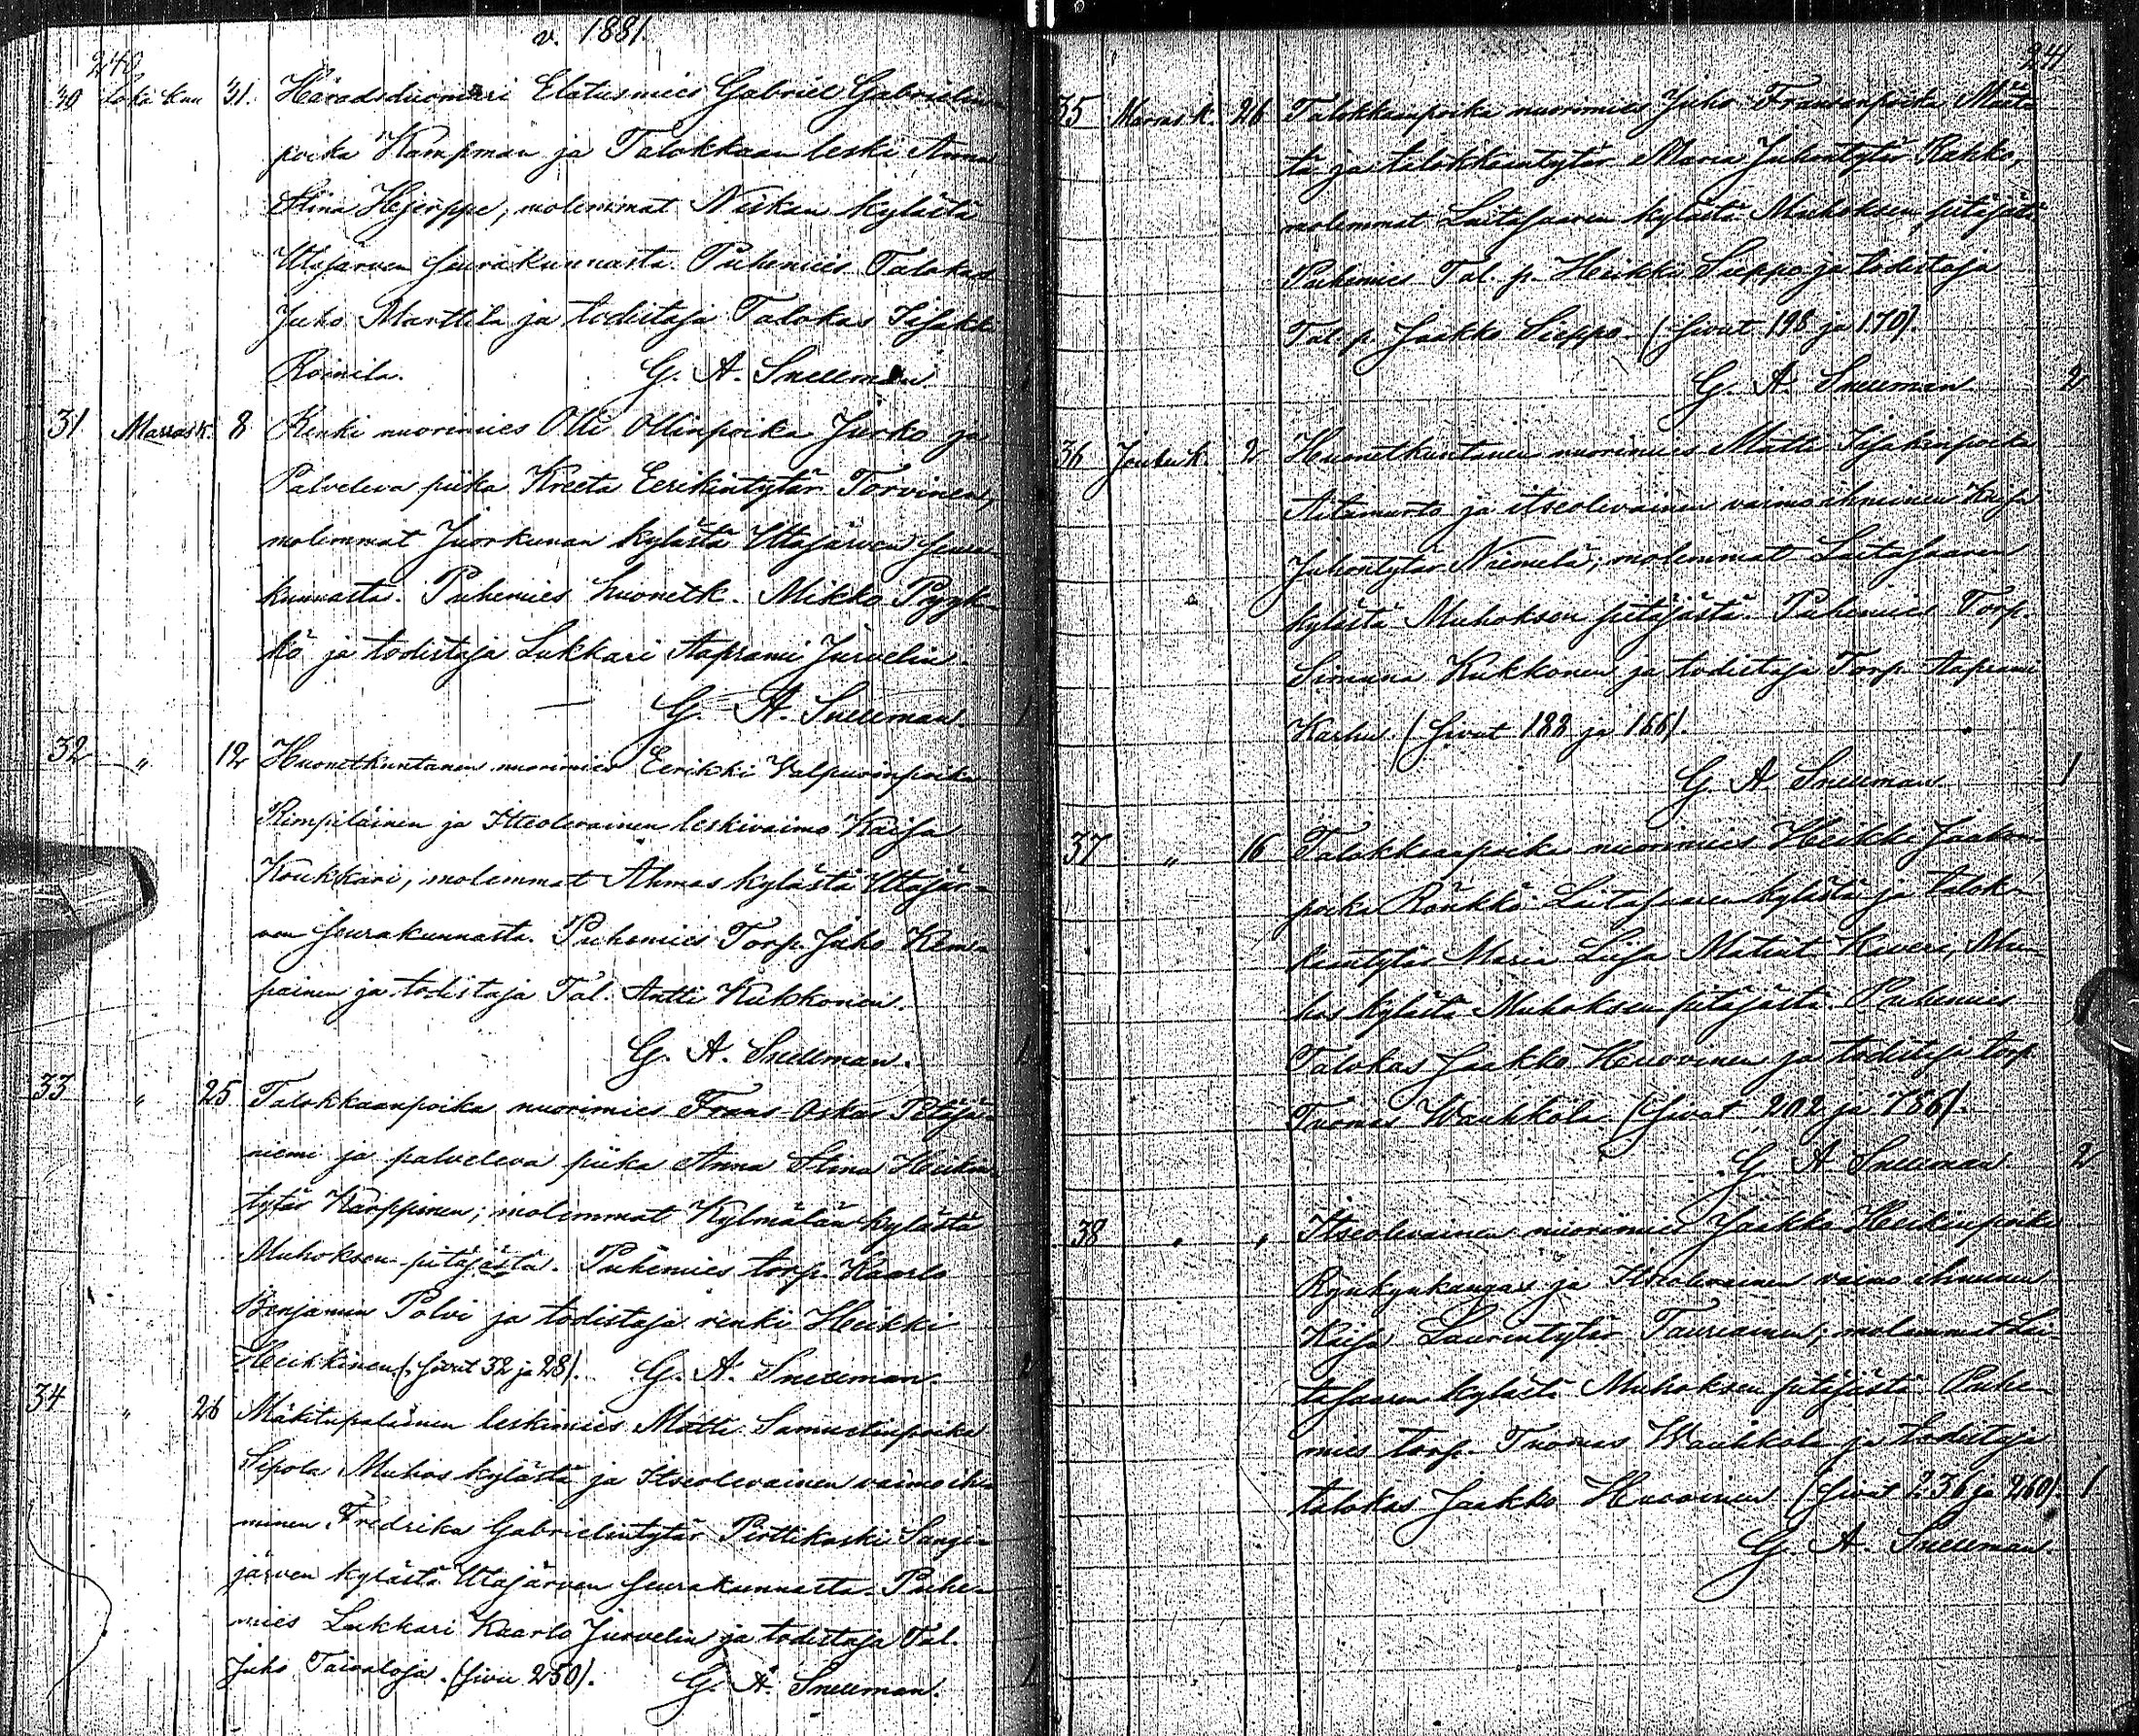 v. 1881.
240
30 Loka kuu 31. Häradsduomari Elatusmies Gabriel Gabrielin-
poika Kampman ja Talokkaan leski Anna
Stina Hjerppe, molemmat Niskan kylästä
Utajärven seurakunnasta. Puhemies Talokas
Juho Marttila ja todistaja Talokas Iisakki
Roinila. G. A. Snellman. 1
31 Marrask. 8 Renki nuorimies Olli Ollinpoika Jurko ja
Palveleva piika Kreeta Eerikintytär Torvinen,
molemmat Juorkunan kylästä Uttajärven seura-
kunnasta. Puhemies huonetk. Mikko Pyyk-
kö ja todistaja Lukkari Aaprami Jurvelin.
G. A. Snellman. 1
32 " 12 Huonetkuntanen nuorimies Eerikki Valpurinpoika
Rimpiläinen ja Itseolevainen leskivaimo Kaisa
Koukkari, molemmat Ahmas kylästä Uttajär-
ven seurakunnasta. Puhemies Torp. Juho Kem-
painen ja todistaja Tal. Antti Kukkonen.
G. A. Snellman. 1
33 " 25 Talokkaanpoika nuorimies Frans Oskar Petäjä-
niemi ja palveleva piika Anna Stina Heikin-
tytär Karppinen; molemmat Kylmälän kylästä
Muhoksen pitäjästä. Puhemies torp. Kaarlo
Benjamin Polvi ja todistaja renki Heikki
Heikkinen (sivut 32 ja 28). G. A. Snellman. 2
34 " 26 Mäkitupalainen leskimies Matti Samuelinpoika
Sipola Muhos kylästä ja Itseolevainen vaimoih-
minen Fredrika Gabrielintytär Perttikoski Sangi-
järven kylästä Utajärven seurakunnasta. Puhe-
mies Lukkari Kaarlo Jurvelin ja todistaja Tal.
Juho Taivaloja. (sivu 250). G. A. Snellman. 1
241
35 Marrask. 26 Talokkaanpoika nuorimies Juho Fransinpoika Määt-
tä ja talokkaantytär Maria Juhontytär Kakko,
molemmat Laitasaaren kylästä Muhoksen pitäjästä.
Puhemies Tal. p. Heikki Sieppo ja todistaja
Tal. p. Jaakko Sieppo. (sivut 198 ja 170).
G. A. Snellman 2
36 Jouluk. 2 Huonetkuntanen nuorimies Matti Iisakinpoika
Aitamurto ja itseolevainen vaimoihminen Kaisa
Juhontytär Niemelä; molemmat Laitasaaren
kylästä Muhoksen pitäjästä. Puhemies Torp.
Simuna Kukkonen ja todistaja Torp. Aaprami
Karhu. (sivut 188 ja 166).
G. A. Snellman. 1
37 " 16 Talokkaanpoika nuorimies Heikki Jaakon-
poika Rönkkö Laitasaaren kylästä ja talok-
kaantytär Maria Liisa Matint. Kaveri, Mu-
hos kylästä Muhoksen pitäjästä. Puhemies
Talokas Jaakko Huovinen ja todistaja torp.
Tuomas Wauhkola. (sivut 202 ja 186).
G. A. Snellman. 2
38 " " Itseolevainen nuorimies Jaakko Heikinpoika
Rynkynkangas ja Itseolevainen vaimo ihminen
Kaisa Laurintytär Tauriainen; molemmat Lai-
tasaaren kylästä Muhoksen pitäjästä. Puhe-
mies torp. Tuomas Wauhkola ja todistaja
talokas Jaakko Huovinen (sivut 236 ja 260). 1
G. A. Snellman.